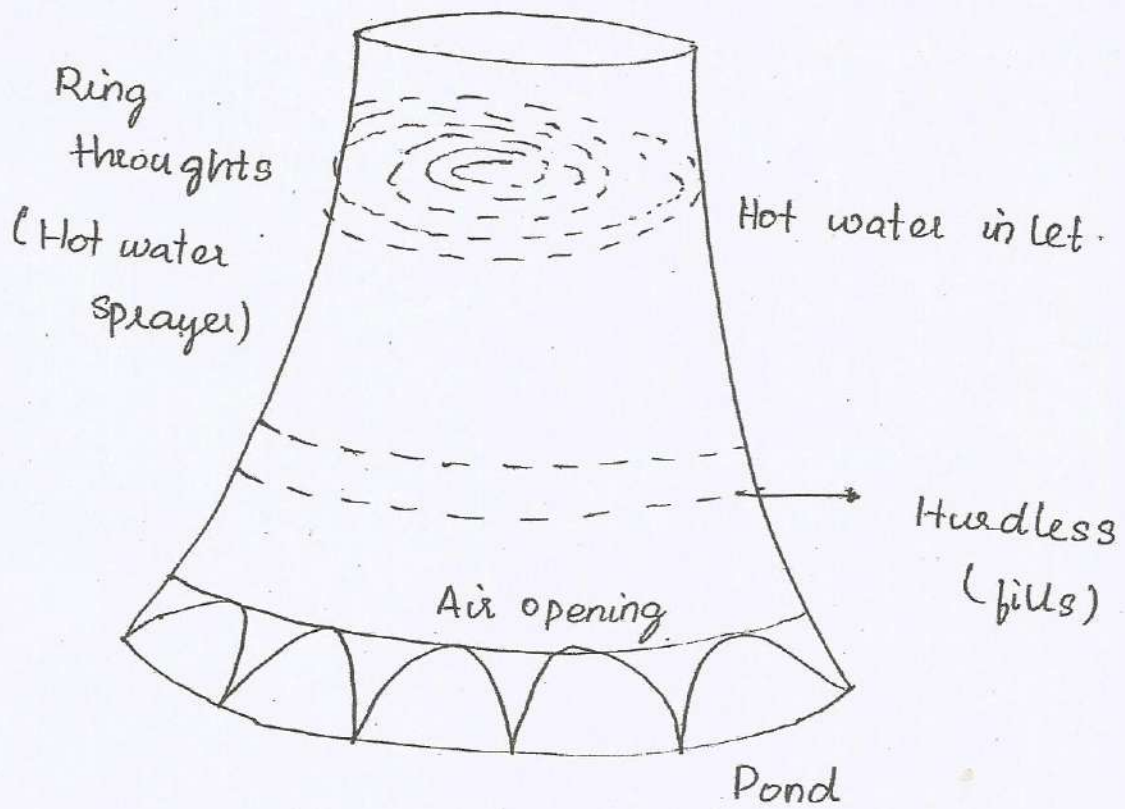 Ring
throughts
(Hot water
sprayer)
Hot water inlet.
Hurdless
(fills)
Air opening
Pond